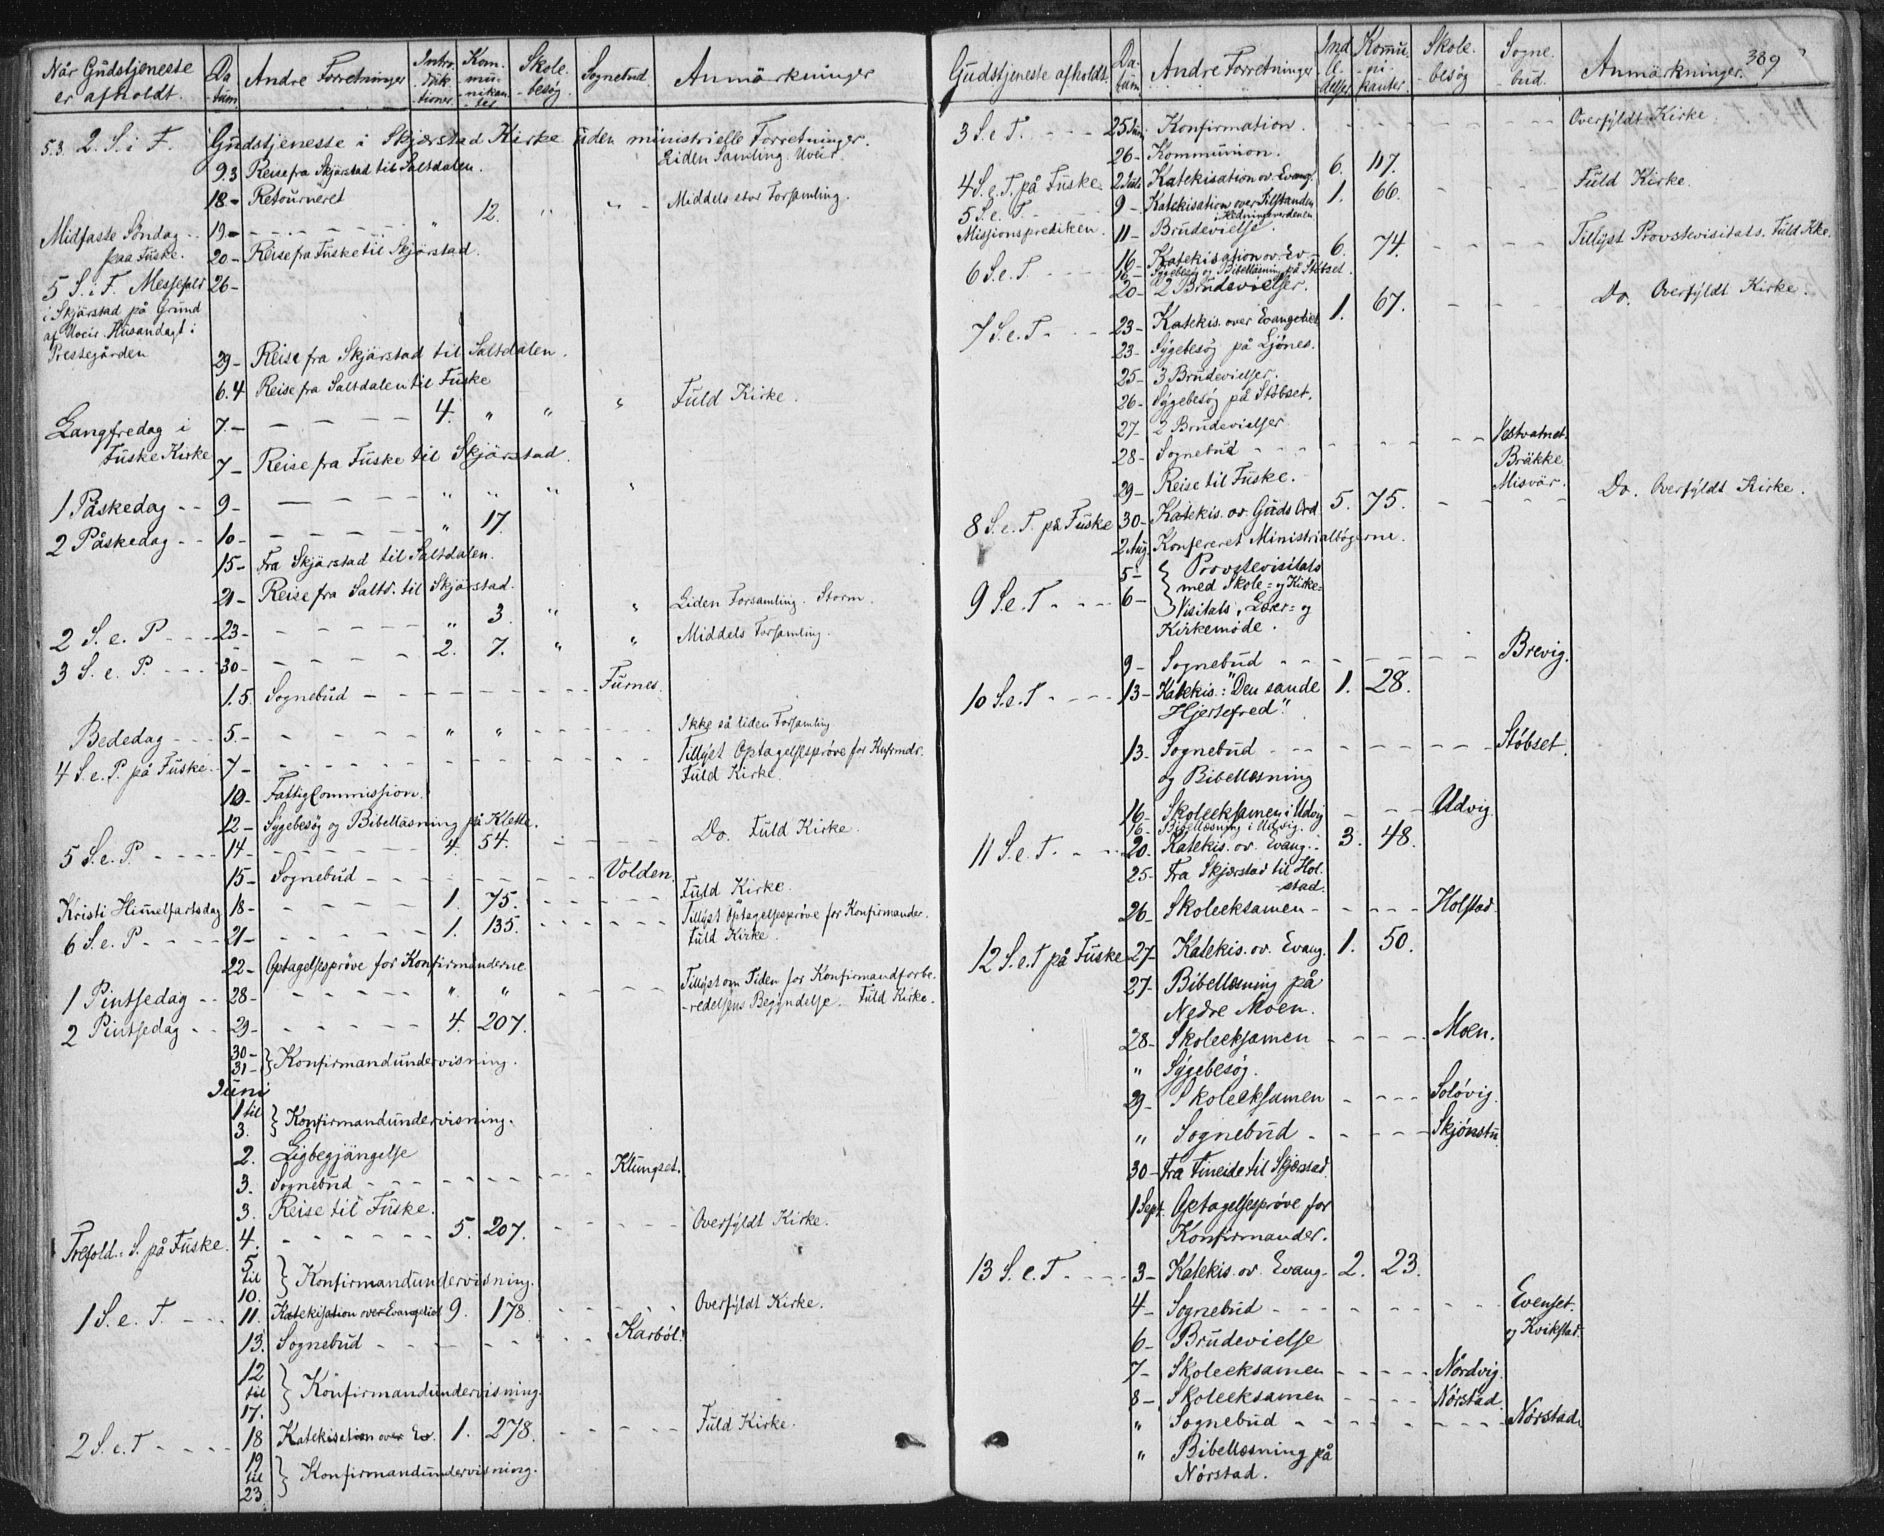 Når Gudstjeneste er afholdt. Datum Andre Forretninger Introduktioner Kommunikanter Skolebesøg Sognebud Anmärkninger
5.3. 2. S. i F. Gudstjeneste i Skjerstad Kirke uden ministrielle Forretninger.
Liden Samling. Uveir.
9.3 Reise fra Skjärstad til Saltdalen.
18 - Retourneret
Midfaste Söndag paa Fuske. 19 - - - - - " 12. " " Middels stor Forsamling.
20 - Reise fra Fuske til Skjärstad.
5 S. i F. Messefald 26 -
i Skjärstad på Grund
af Uveir. Husandagt i
Prestegården
29 - Reise fra Skjärstad til Saltdalen.
6.4 Reise fra Saltdalen til Fuske
Langfredag i Fuske Kirke 7. - - - - - 4. " " " Fuld Kirke.
7 - Reise fra Fuske til Skjärstad.
1 Påskedag - - 9 - - - - " " " "
2 Påskedag - - 10 - - - - - " 17.
15 - Fra Skjärstad til Saltdalen.
21 - Reise fra Saltd. til Skjärstad.
2 S. e. P - - - 23 - - - - - " 3. " " Liden Forsamling. Storm.
3 S. e. P. - - - 30 - - - - - 2. 7. " " Middels Forsamling.
1.5. Sognebud - - - - - - - Furnes.
Bededag - - - 5. - - - - - " " - - - - Ikke så liden Forsamling
4 S. e. P. på Fuske. - 7 - - - - - - - - - - Tillyst Optagelsesprøve for Knfrmdr. Fuld Kirke.
10 - Fattig Commission.
12 - Sygebesøg og Bibelläsning på Klette.
5 S. e. P. - - - - 14 - - - - - 4. 54. - - - - Do. Fuld Kirke.
15 - Sognebud - - - - - - - Volden.
Kristi Himelfartsdag 18 - - - - - 1. 75. - - - - Fuld Kirke.
6 S. e. P - - - - 21 - - - - - 1. 135. - - - - Tillyst Optagelsesprøve for Konfirmander. Fuld Kirke.
22 - Optagelsesprøve for Konfirmanderne
1 Pintsedag - - 28 - - - - - " " - - - - Tillyst om Tiden for Konfirmandforberedelsens Begyndelse. Fuld Kirke.
2 Pintsedag - - 29 - - - - - 4. 207.
30 -
31 - } Konfirmandundervisning.
Juni
1 til
3. } Konfirmandundervisning.
2. Ligbegjängelse
3. Sognebud - - - - - - - Klungset.
3. Reise til Fuske.
Trefold. S. på Fuske. 4. - - - - - 5. 207. - - - - Overfyldt Kirke.
5 til 10. } Konfirmandundervisning.
1 S. e. T. - - - 11. Katekisation over Evangeliet 9. 178. - - - - Overfyldt Kirke.
13. Sognebud - - - - - - - Karbøl.
12 til 17. } Konfirmandundervisning.
2 S. e. T - - - - 18 Katekisation over Ev. 1. 278. - - - - Fuld Kirke.
19 til 23. } Konfirmandundervisning.
Gudstjeneste afholdt. Datum Andre Forretninger Indledelser Komunikanter. Skolebesøg Sognebud. Anmärkninger. 389
3 S. e. T. - - - - 25 Juni Konfirmation. - - - - - Overfyldt Kirke.
26 - Kommunion.
4 S. e. T. på Fuske. 2 Juli Katekisation ov. Evang. 6. 117. - - - Fuld Kirke.
5 S. e. T. - - - - 9 - Katekisation over Tilstanden i Hedningeverdenen 1. 66.
Missionsprediken. 11 - Brudevielse.
6 S. e. T - - - 16 - Katekisation ov. Ev - 6. 74. - - - - Tillyst Provstevisitats. Fuld Kke.
16 - Sygebesøg og Bibelläsning på Støbset.
20 - 2 Brudevielser.
7 S. e. T - - - - 23 - Katekis. over Evangeliet 1. 67. - - - - Do. Overfyldt Kirke.
23 - Sygebesøg på Ljönes.
25 - 3 Brudevielser.
26 - Sygebesøg på Støbset.
27 - 2 Brudevielser
28 - Sognebud - - - - - - - Vestvatnet. Bräkke Misvär.
29 - Reise til Fuske.
8 S. e. T. på Fuske 30 - Katekis. ov. Guds Ord. 5. 75. - - - - Do. Overfyldt Kirke.
2 Aug. Konfereret Ministrialbøgerne.
9 S. e. T - - - - 5 -
6 - } Provstevisitats
med Skole= og Kirke=
Visitats, Lærer= og
Kirkemøde.
9 - Sognebud - - - - - - Brevig.
10 S. e. T - - - - 13 - Katekis.: "Den sande Hjertefred". 1. 28.
13. Sognebud - - - - - - - Støbset.
og Bibellæsning
16 - Skoleeksamen i Udvig - - - Udvig
16 - Bibellæsning i Udvig.
11 S. e. T. - - - 20. Katekis. ov. Evang. - 3. 48.
25 - Fra Skjærstad til Holstad.
26 - Skoleeksamen - - - - - Holstad
12 S. e. T på Fuske 27 - Katekis. ov. Evang. 1. 50.
27 - Bibellæsning på
Nedre Moen.
28 - Skoleeksamen - - - - Moen.
" Sygebesøg.
29 - Skoleeksamen - - - - Soløvig.
" Sognebud - - - - - Skjønstu
30 - Fra Fineide til Skjærstad
1 Sept. Optagelsesprøve for
Konfirmander.
13 S. e. T - - - - 3 - Katekis. ov. Evang - 2. 23.
4 - Sognebud - - - - - - - Evenset. og Kvikstad.
6 - Brudevielse
7 - Skoleeksamen - - - - Nordvig.
8 - Skoleeksamen - - - - Nørstad.
" Sognebud - - - - - - - Nørstad.
" Bibellæsning på
Nørstad.